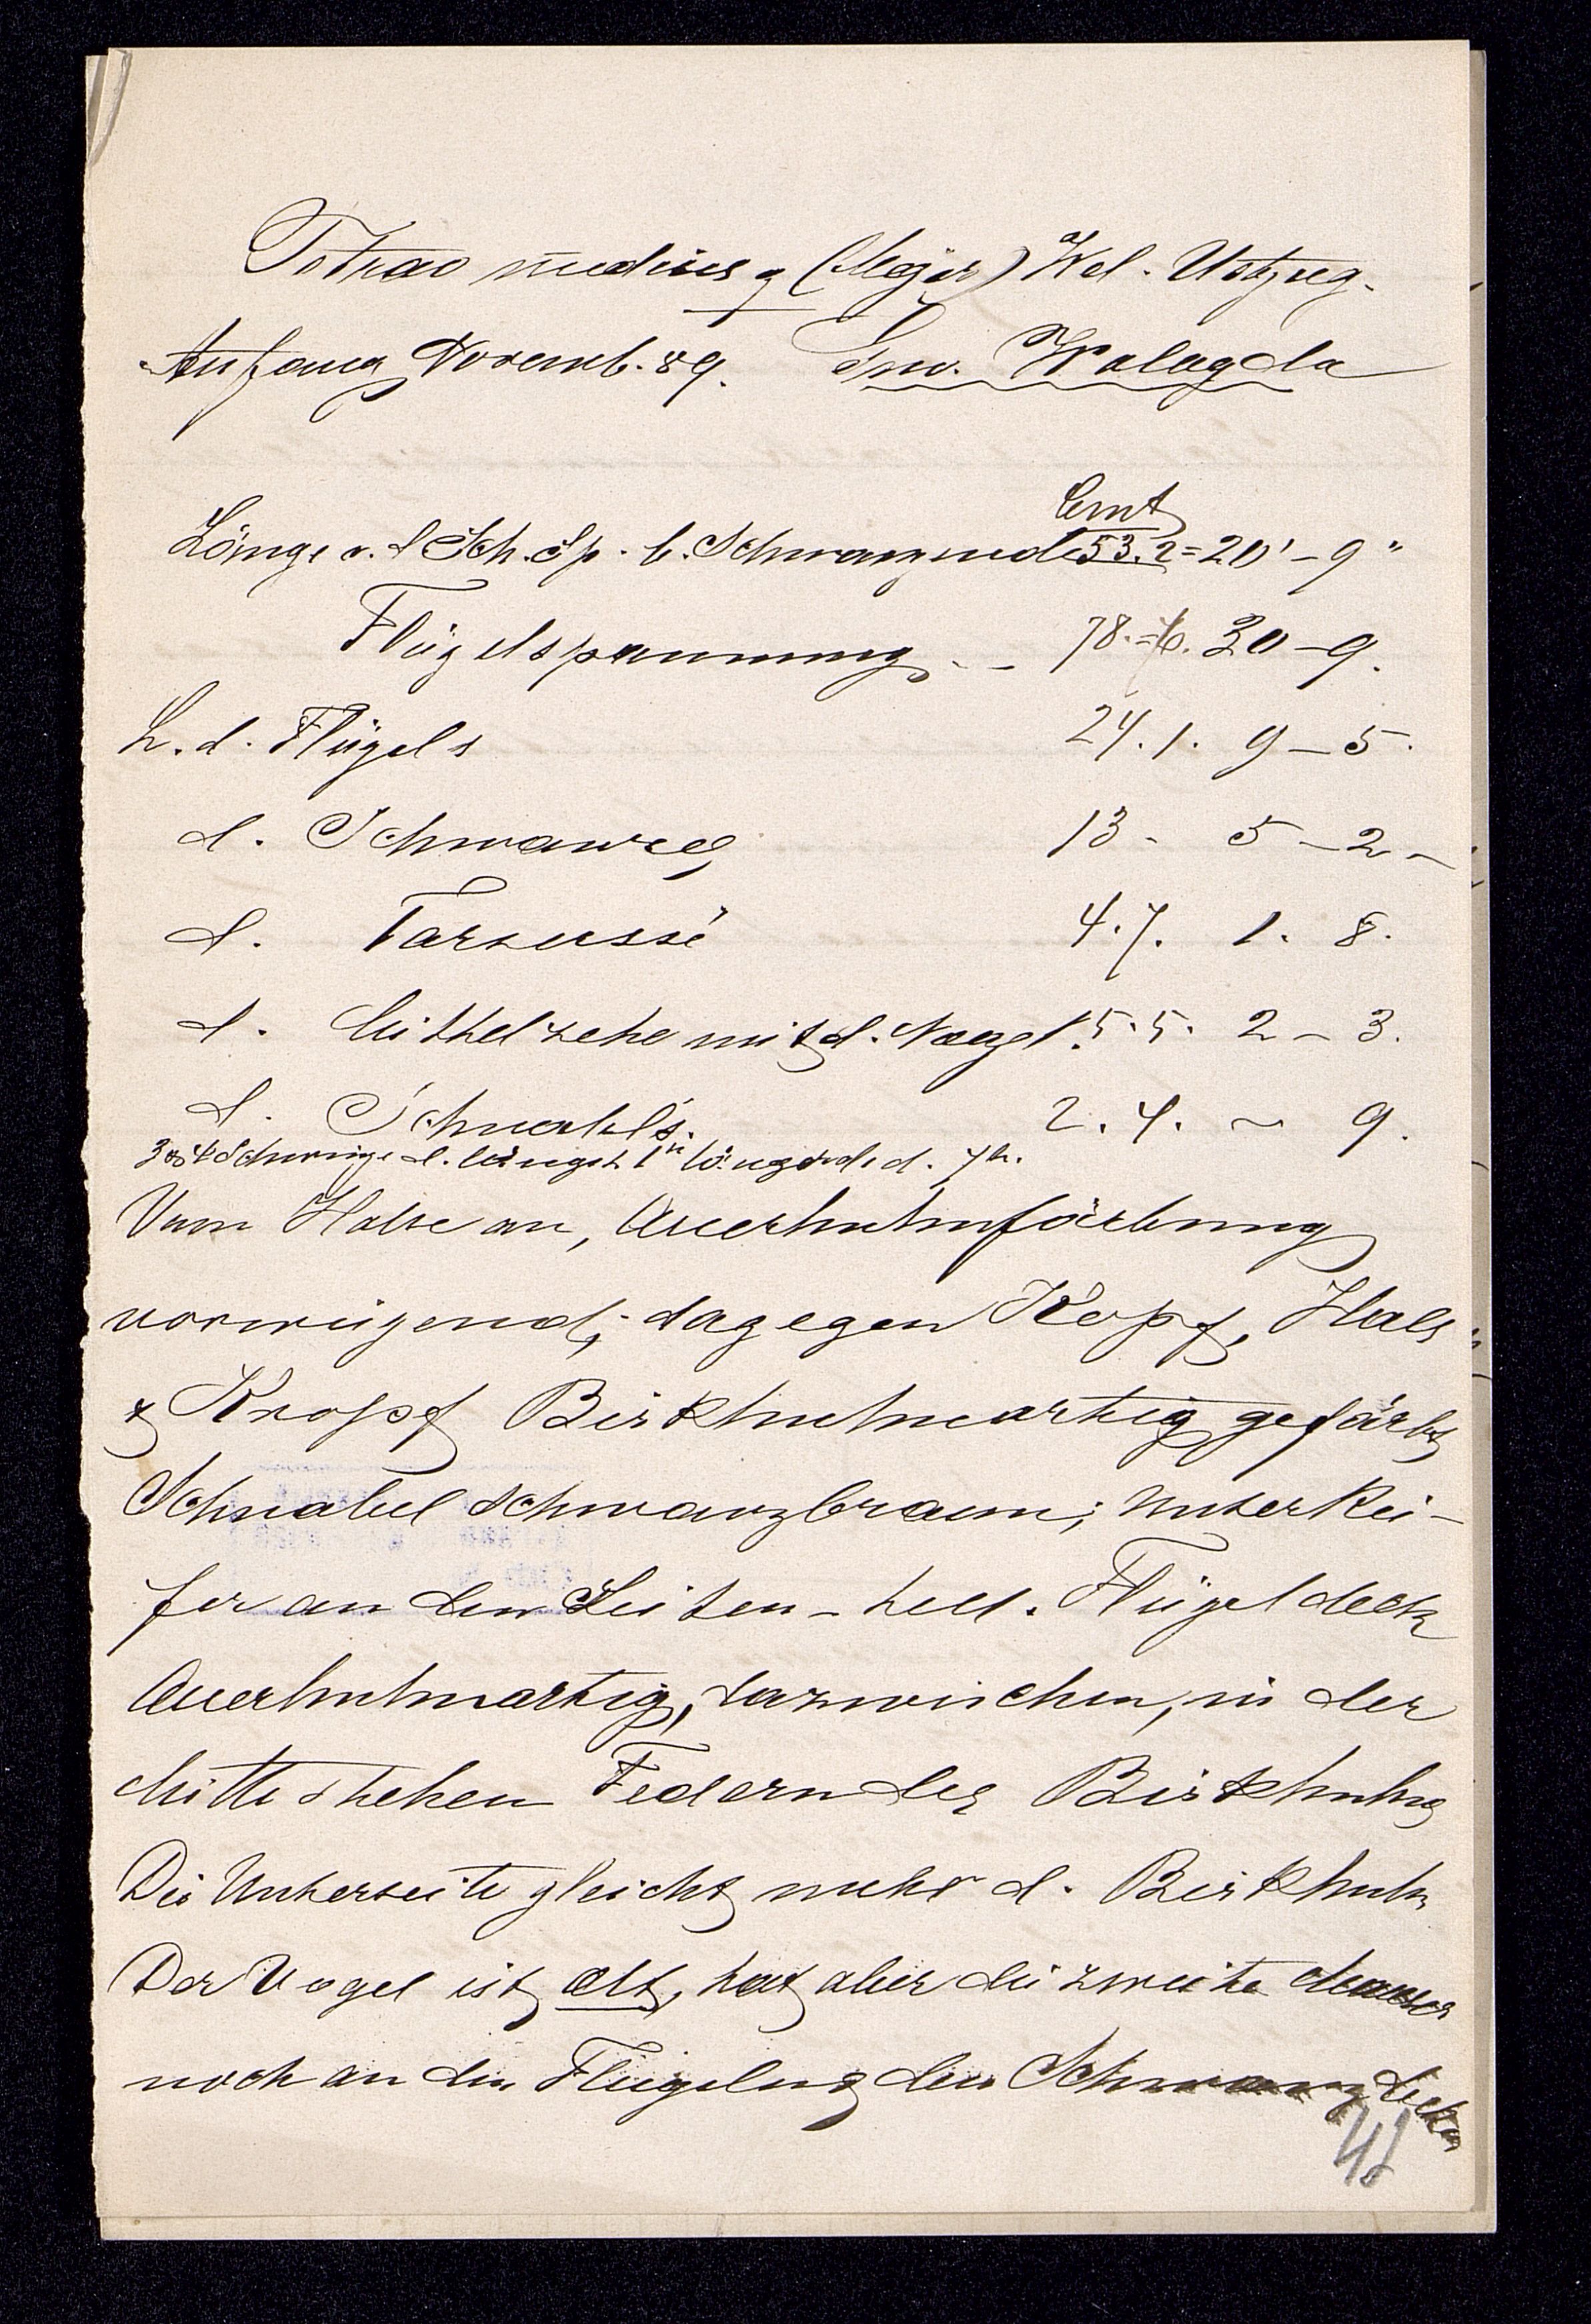 Tetrao medius ♀ (Mejer) Wel. Ustjug.
Anfang Novemb. 89. Gw. Wologda
Cmt
Länge v. d Sch. Sp. b. Schwanzende 53.2 = 20' - 9"
Flügelspannung - - 78. = 30 - 9.
L. d. Flügels 24.1. 9 - 5.
d. Schwanzes 13 - 5 - 2 -
d. Tarsusse 4.7. 1. 8.
d. Mittelzehe mit d. Nagel. 5.5. 2 - 3.
d. Schnabels. 2.4. ~ 9.
3 & 4 Schwinge d. längst. länger als d. 7te.
Vom Halse an, Auerhuhnfärbung
vorwiegend; dagegen Kopf, Hals
& Kropf Birkhuhnartig gefärbt
Schnabel schwarzbraun; Unterkie-
fer an den Seiten - hell. Flügeldeck
Auerhuhnartig, dazwischen, in der
Mitte stehen Federn des Birkhuhns
Die Unterseite gleicht mehr d. Birkhuhn
Der Vogel ist alt, hat aber die zweite Mauser
noch an den Flügeln & den Schwanzdecken